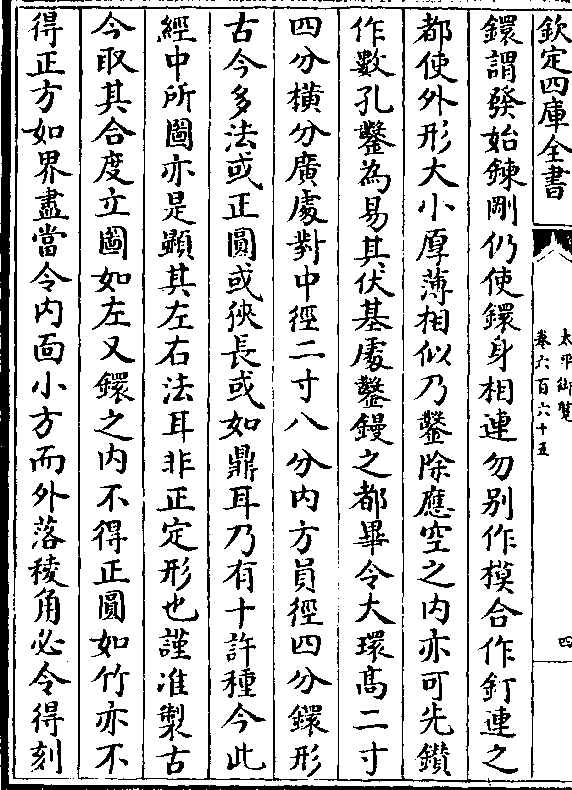 欽定四庫全書
太平御覽
卷六百六十五
四
鐶謂發始鍊剛仍使鐶身相連勿別作模合作釘連之
都使外形大小厚薄相似乃鑿除應空之内亦可先鑽
作數孔鑿為易其伏基處鑿鏝之都畢令大環髙二寸
四分橫分廣處對中徑二寸八分内方員徑四分鐶形
古今多法或正圓或狹長或如鼎耳乃有十許種今此
經中所圖亦是顯其左右法耳非正定形也謹准製古
今取其合度立圖如左又鐶之内不得正圓如竹亦不
得正方如界盡當令内面小方而外落稜角必令得刻